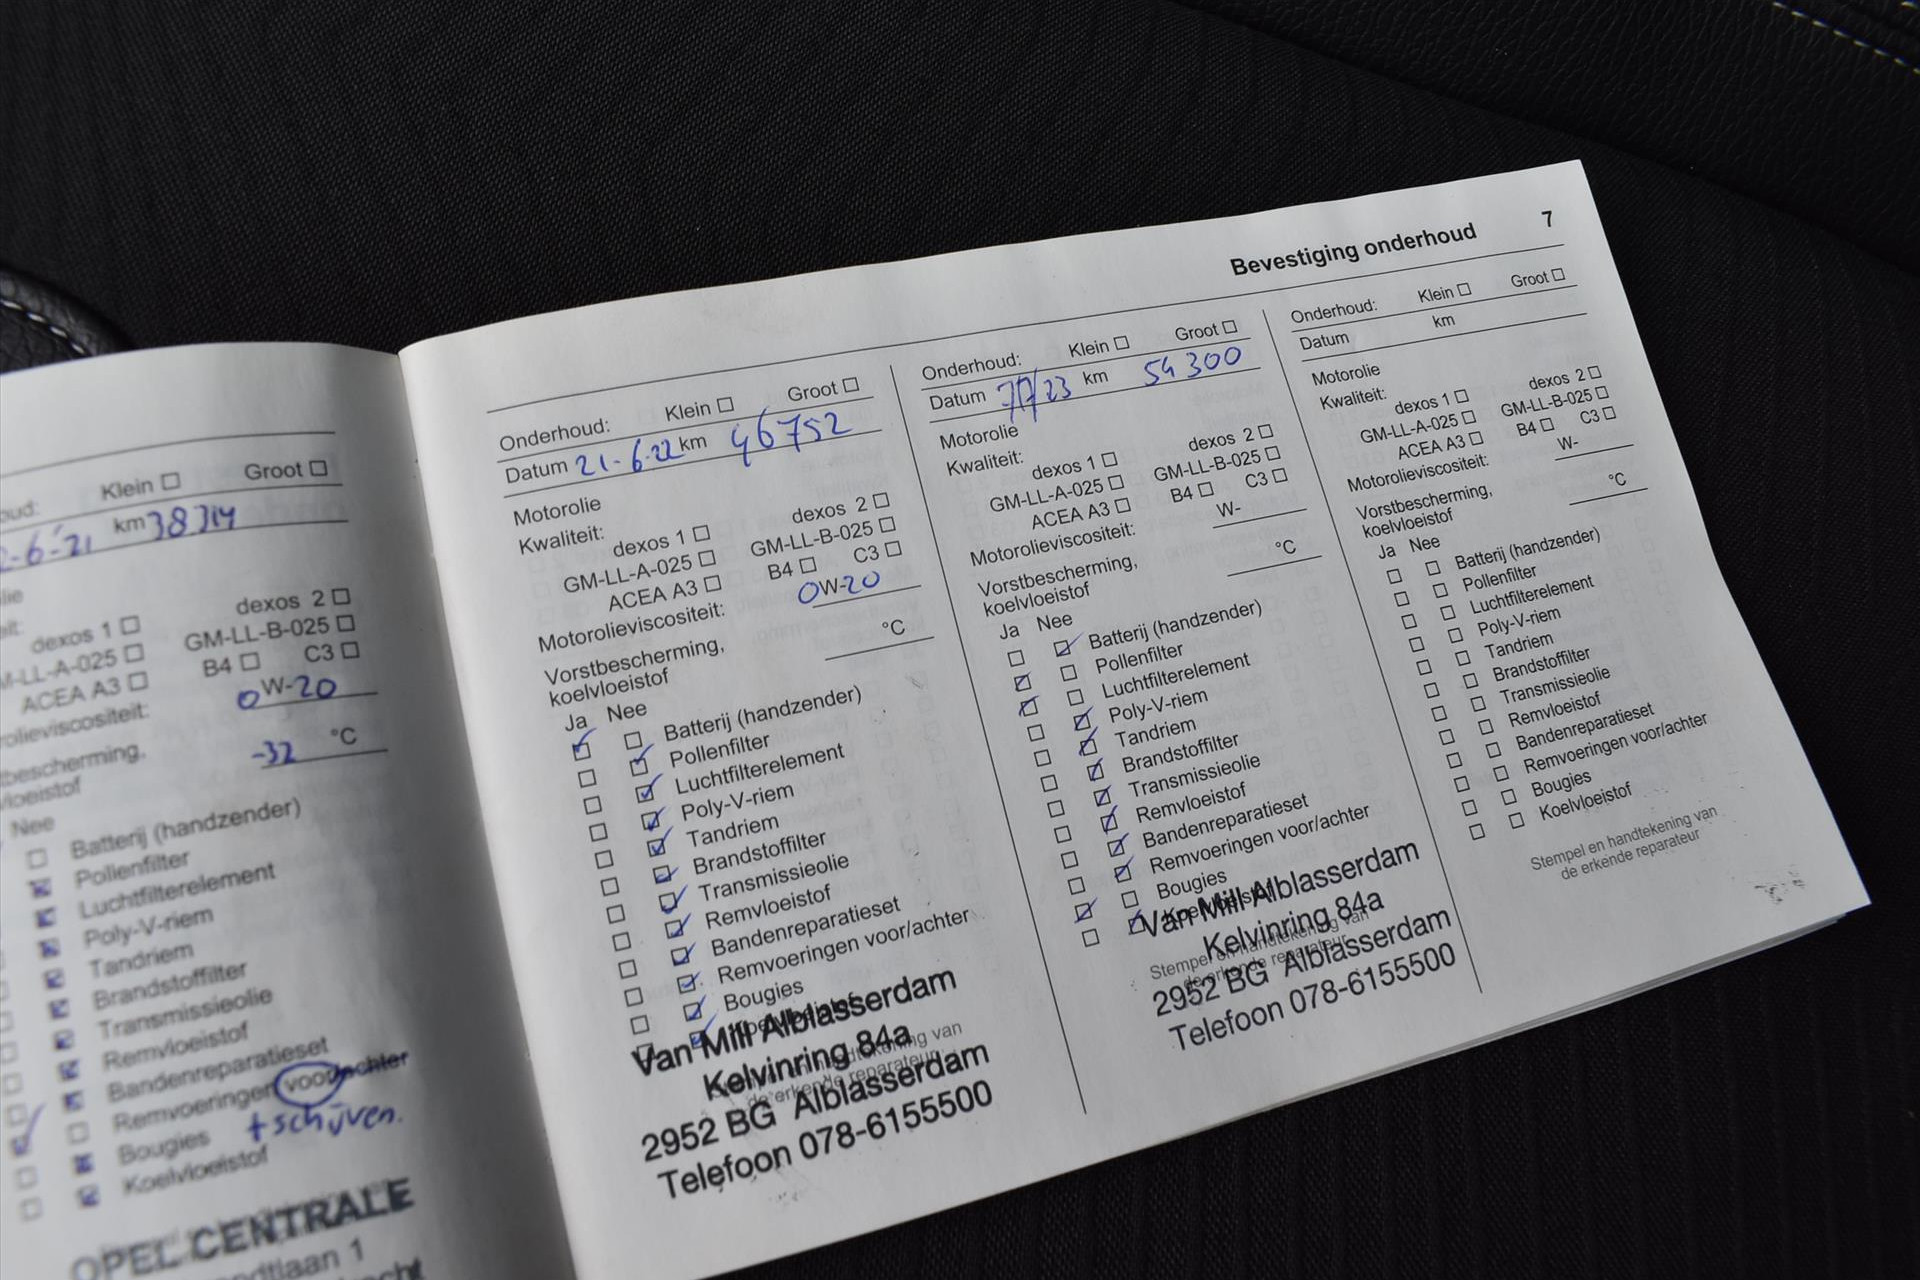 Bevestiging onderhoud 7
Klein Groot
km 38314
dexos 1 dexos 2
GM-LL-B-025
ACEA A3 B4 C3
0W-20
-32 °C
Nee
Batterij (handzender)
Pollenfilter
Luchtfilterelement
Poly-V-riem
Tandriem
Brandstoffilter
Transmissieolie
Remvloeistof
Bandenreparatieset
Remvoeringen voor/achter
+ schijven.
Bougies
Koelvloeistof
OPEL CENTRALE
Onderhoud: Klein Groot
Datum 21-6-22 km 46752
Motorolie
Kwaliteit:
dexos 1 dexos 2
GM-LL-A-025 GM-LL-B-025
ACEA A3 B4 C3
Motorolieviscositeit: 0W-20
Vorstbescherming,
koelvloeistof °C
Ja Nee
Batterij (handzender)
Pollenfilter
Luchtfilterelement
Poly-V-riem
Tandriem
Brandstoffilter
Transmissieolie
Remvloeistof
Bandenreparatieset
Remvoeringen voor/achter
Bougies
Van Mill Alblasserdam
Kelvinring 84a
de erkende reparateur
2952 BG Alblasserdam
Telefoon 078-6155500
Onderhoud: Klein Groot
Datum 7/7/23 km 54300
Motorolie
Kwaliteit:
dexos 1 dexos 2
GM-LL-A-025 GM-LL-B-025
ACEA A3 B4 C3
Motorolieviscositeit: W-
Vorstbescherming,
koelvloeistof °C
Ja Nee
Batterij (handzender)
Pollenfilter
Luchtfilterelement
Poly-V-riem
Tandriem
Brandstoffilter
Transmissieolie
Remvloeistof
Bandenreparatieset
Remvoeringen voor/achter
Bougies
Van Mill Alblasserdam
Kelvinring 84a
Stempel en handtekening van
de erkende reparateur
2952 BG Alblasserdam
Telefoon 078-6155500
Onderhoud: Klein Groot
Datum km
Motorolie
Kwaliteit:
dexos 1 dexos 2
GM-LL-A-025 GM-LL-B-025
ACEA A3 B4 C3
Motorolieviscositeit: W-
Vorstbescherming,
koelvloeistof °C
Ja Nee
Batterij (handzender)
Pollenfilter
Luchtfilterelement
Poly-V-riem
Tandriem
Brandstoffilter
Transmissieolie
Remvloeistof
Bandenreparatieset
Remvoeringen voor/achter
Bougies
Koelvloeistof
Stempel en handtekening van
de erkende reparateur